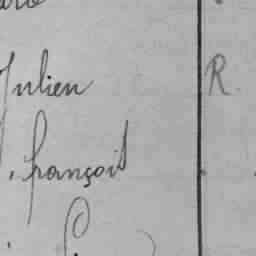 Julien R.
françois